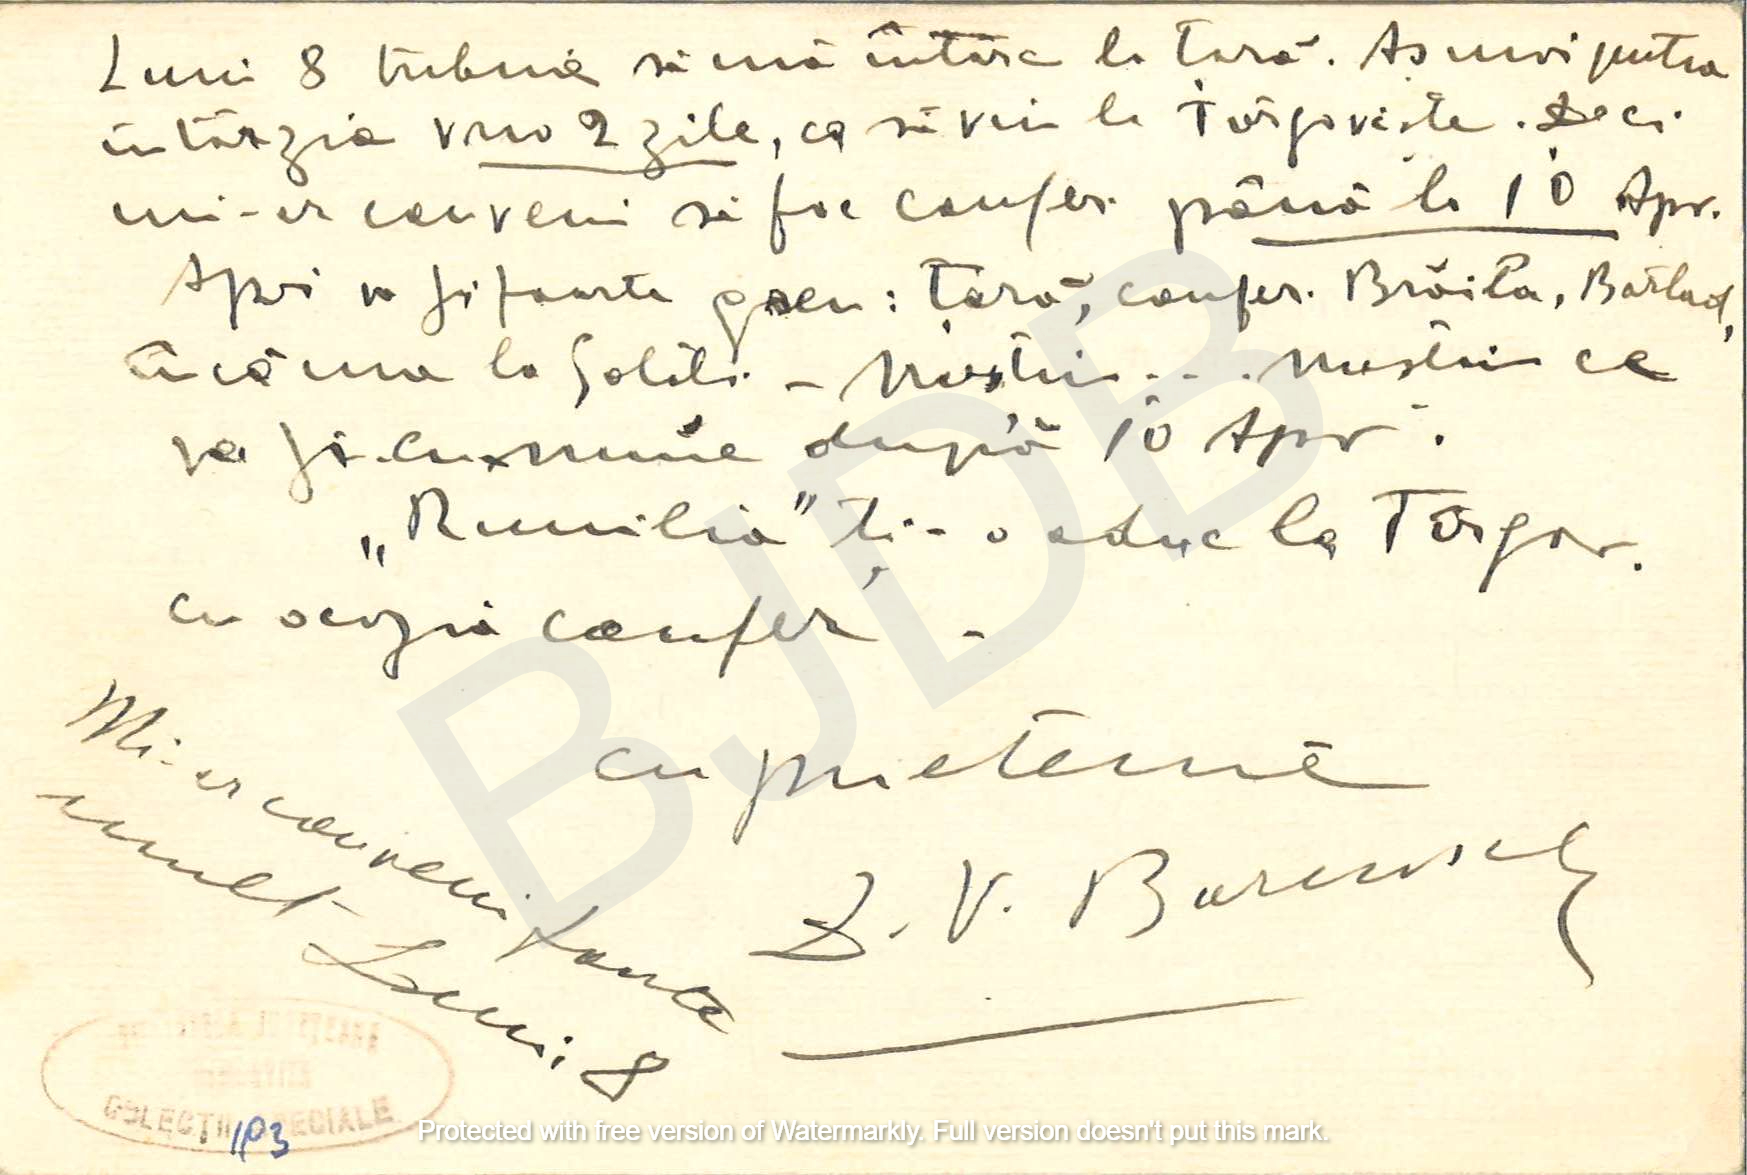 Luni 8 trebuie să mă întorc la țară. Aș mai putea
întârzia vreo 2 zile, ca să vin la Târgoviște. Deci
mi-ar conveni să fac confer. până la 10 Apr.
Apoi va fi foarte greu: țară, confer. Brăila, Bârlad,
încă una la Galați - Nu știu... Nu știu ce
va fi cu mine după 10 Apr.
„Rumilia” ți-o aduc la Târgov.
cu ocazia confer -
cu prietenie
D. V. Barnoschi
Mi-ar conveni foarte
mult Luni 8
COLECȚII SPECIALE
103
BJDB
Protected with free version of Watermarkly. Full version doesn't put this mark.